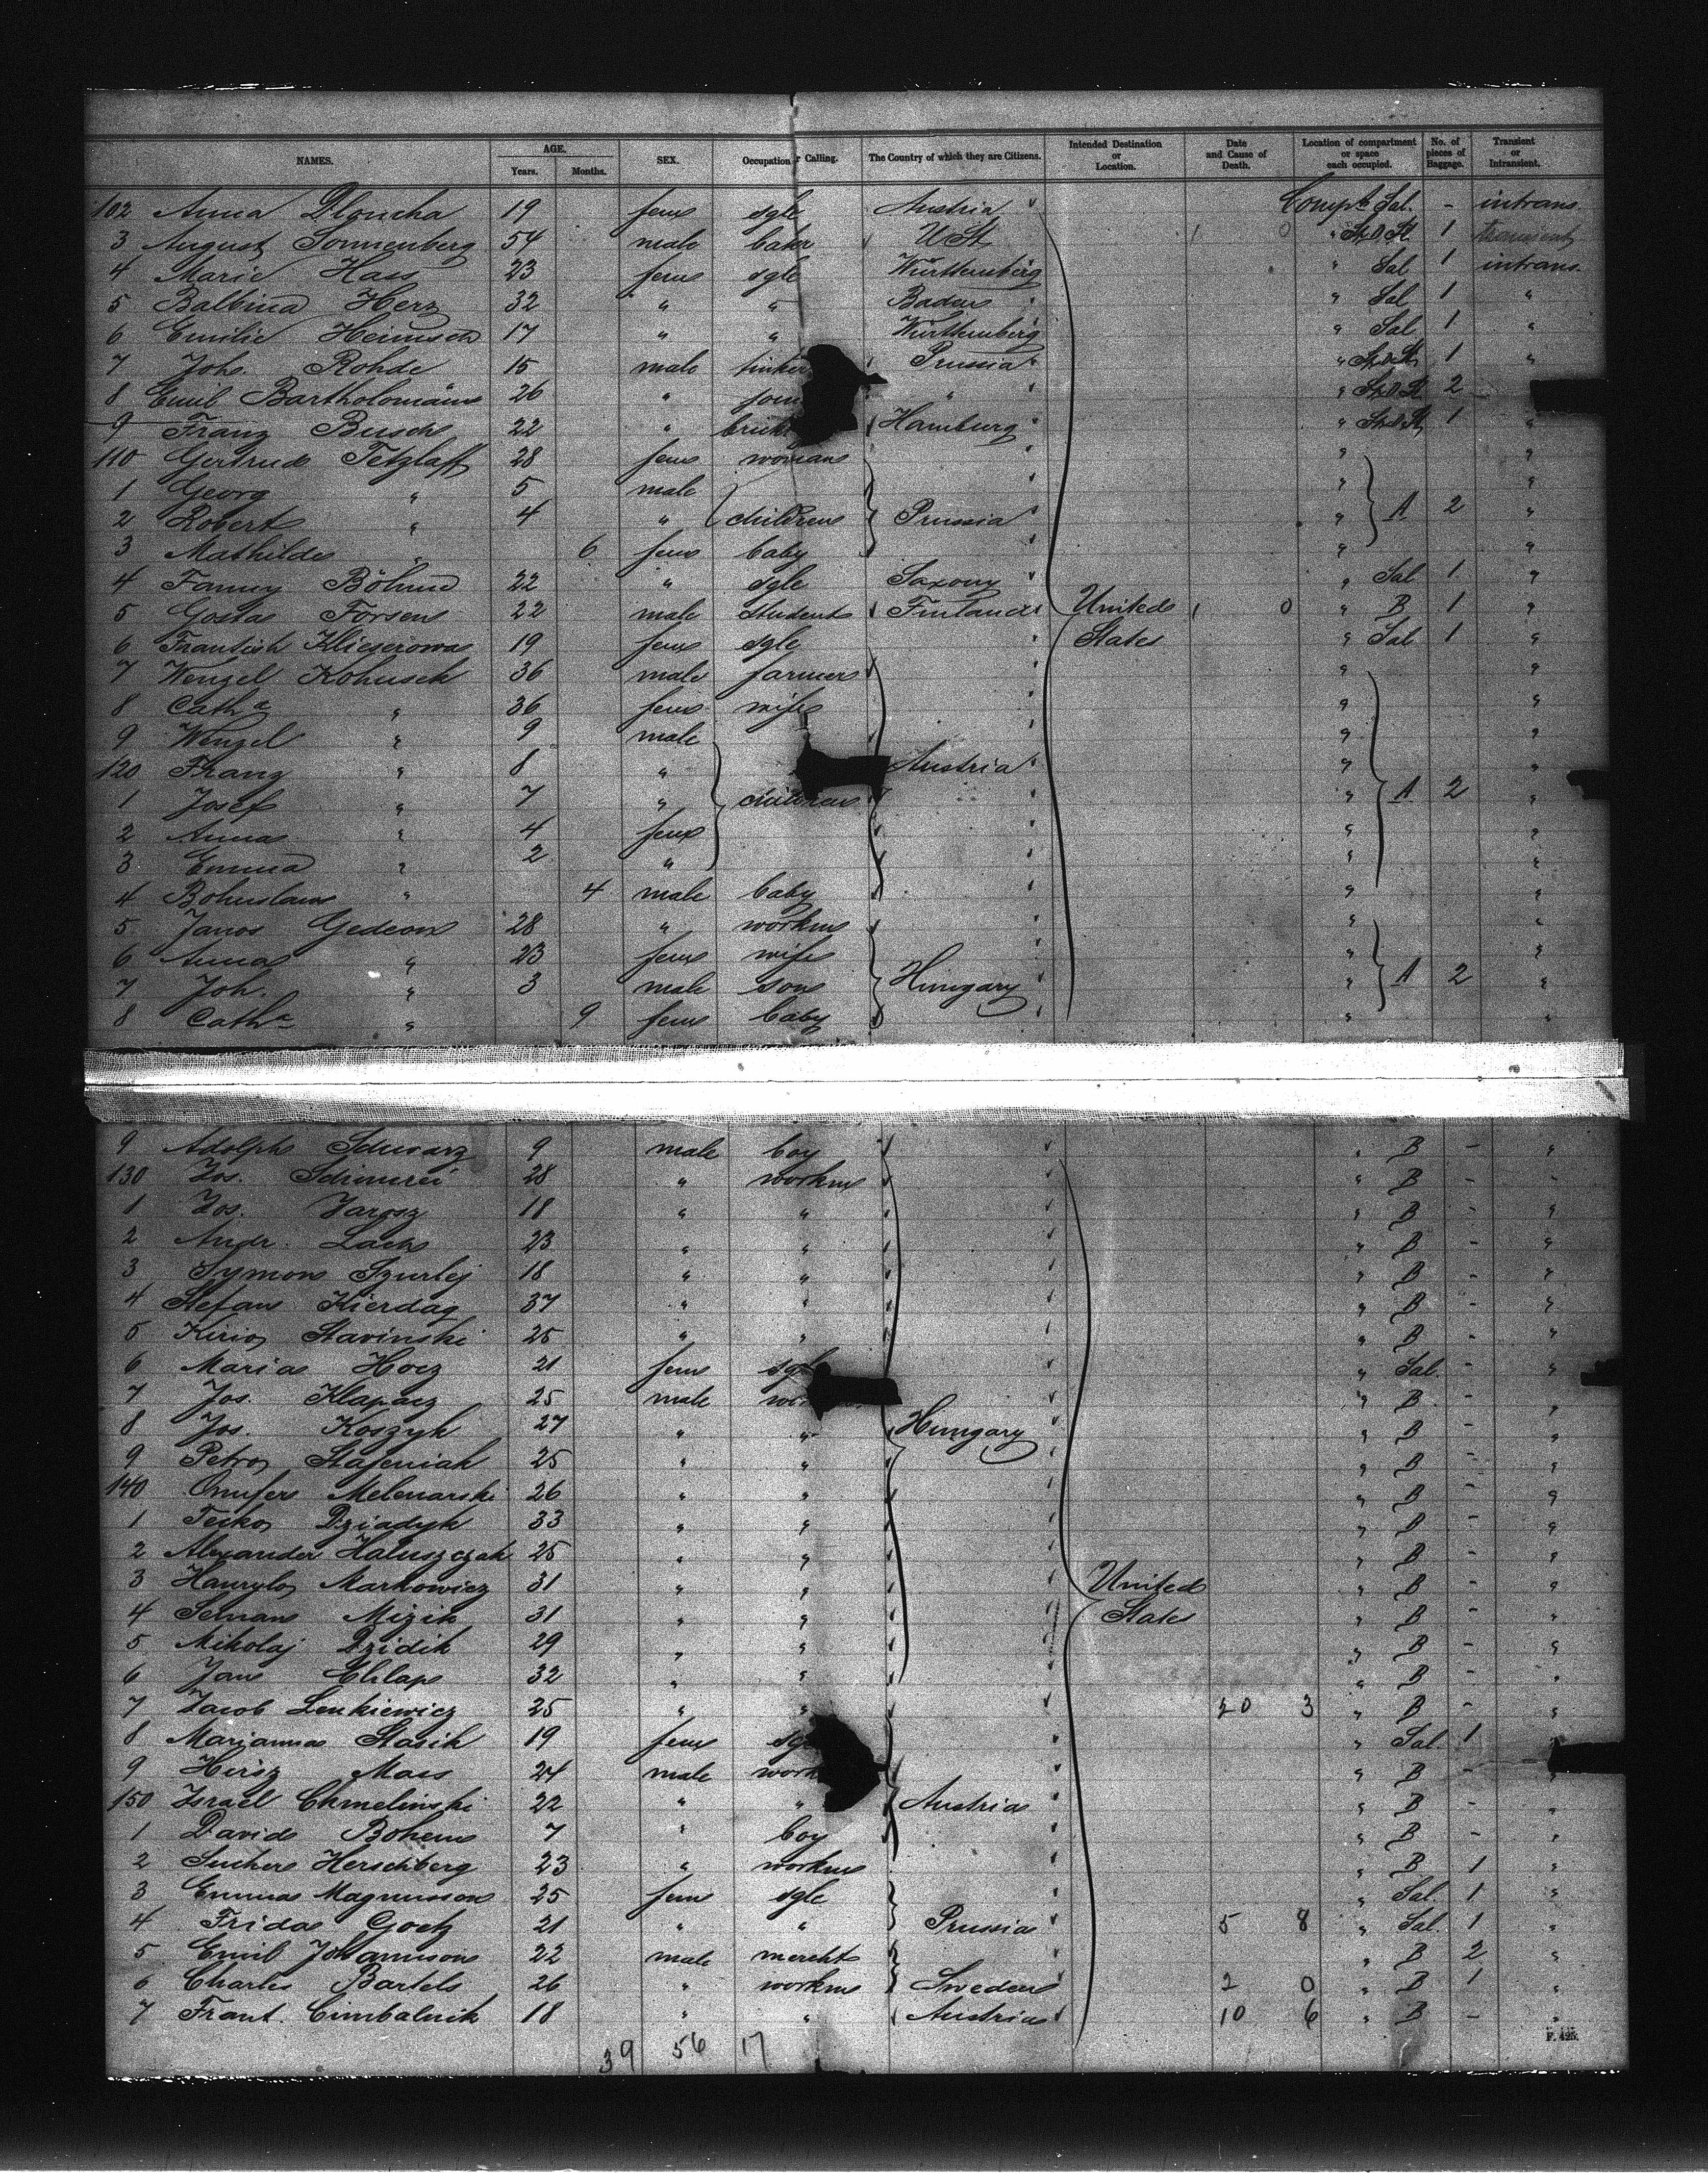 NAMES. AGE. Years. Months. SEX. Occupation r Calling. The Country of which they are Citizens. Intended Destination or Location. Date and Cause of Death. Location of compartment or space each occupied. No. of pieces of Baggage. Transient or Intransient.
102 Anna Ploucha 19 fem sgle Austria Compt Sal. - intrans.
3 August Sonnenberg 54 male baker U St 1 0 " St 1 transient
4 Marie Hass 23 fem sgle Württemberg " Sal 1 intrans.
5 Balbina Herz 32 " " Baden " Sal 1 "
6 Emilie Heimsch 17 " " Württemberg " Sal 1 "
7 Joh. Rohde 15 male tinker Prussia " 1 "
8 Emil Bartholomäus 26 " join " " 2
9 Franz Busch 22 " brick Hamburg " 1 "
110 Gertrud Tetzlaff 28 fem woman " "
1 Georg " 5 male " "
2 Robert " 4 " children Prussia " A 2 "
3 Mathilde " 6 fem baby " "
4 Fanny Böhme 22 " sgle Saxony " Sal 1 "
5 Gosta Forsen 22 male student Finland United 1 0 " B 1 "
6 Frantish Kliegerowa 19 fem sgle States " Sal 1 "
7 Wenzel Kohusek 36 male farmer " "
8 Catha " 36 fem wife " "
9 Wenzel " 9 male " "
120 Franz " 8 " Austria " "
1 Josef " 7 " children " A 2 "
2 Anna " 4 fem " "
3 Emma " 2 " " "
4 Bohuslaw " 4 male baby " "
5 Janos Gedeon 28 " workm " "
6 Anna " 23 fem wife " "
7 Joh. " 3 male son Hungary " A 2 "
8 Catha " 9 fem baby " "
9 Adolph Schwarz 9 male boy " B - "
130 Jos. Schimrei 28 " workm " B - "
1 Jos. Jarosz 18 " " " B - "
2 Andr. Lach 23 " " " B - "
3 Symon Szurlej 18 " " " B - "
4 Stefan Kierdag 37 " " " B - "
5 Kirio Stavinski 25 " " " B - "
6 Maria Hocz 21 fem sgl " Sal. - "
7 Jos. Klapacz 25 male wo " B - "
8 Jos. Koszyk 27 " " Hungary " B - "
9 Petro Stafeniak 25 " " " B - "
140 Onufer Melenarski 26 " " " B - "
1 Teiko Dziadyk 33 " " " B - "
2 Alexander Haluszczak 25 " " " B - "
3 Hawrylo Markowicz 31 " " United " B - "
4 Seman Mizik 31 " " States " B - "
5 Mikolaj Dzidik 29 " " " B - "
6 Jan Chlap 32 " " " B - "
7 Jacob Lenkiewicz 25 " " 20 3 " B - "
8 Marianna Stasik 19 fem sg " Sal. 1 "
9 Hirsz Mais 24 male work " B - "
150 Israel Chmelinski 22 " " Austria " B - "
1 David Bohem 7 " boy " B - "
2 Sucher Herschberg 23 " workm " B 1 "
3 Emma Magnusson 25 fem sgle " Sal. 1 "
4 Frida Goetz 21 " " Prussia 5 8 " Sal. 1 "
5 Emil Johannson 22 male mercht " B 2 "
6 Charles Bartels 26 " workm Sweden 2 0 " B 1 "
7 Frant. Cimbalnik 18 " " Austria 10 6 " B - "
F. 425.
39 56 17